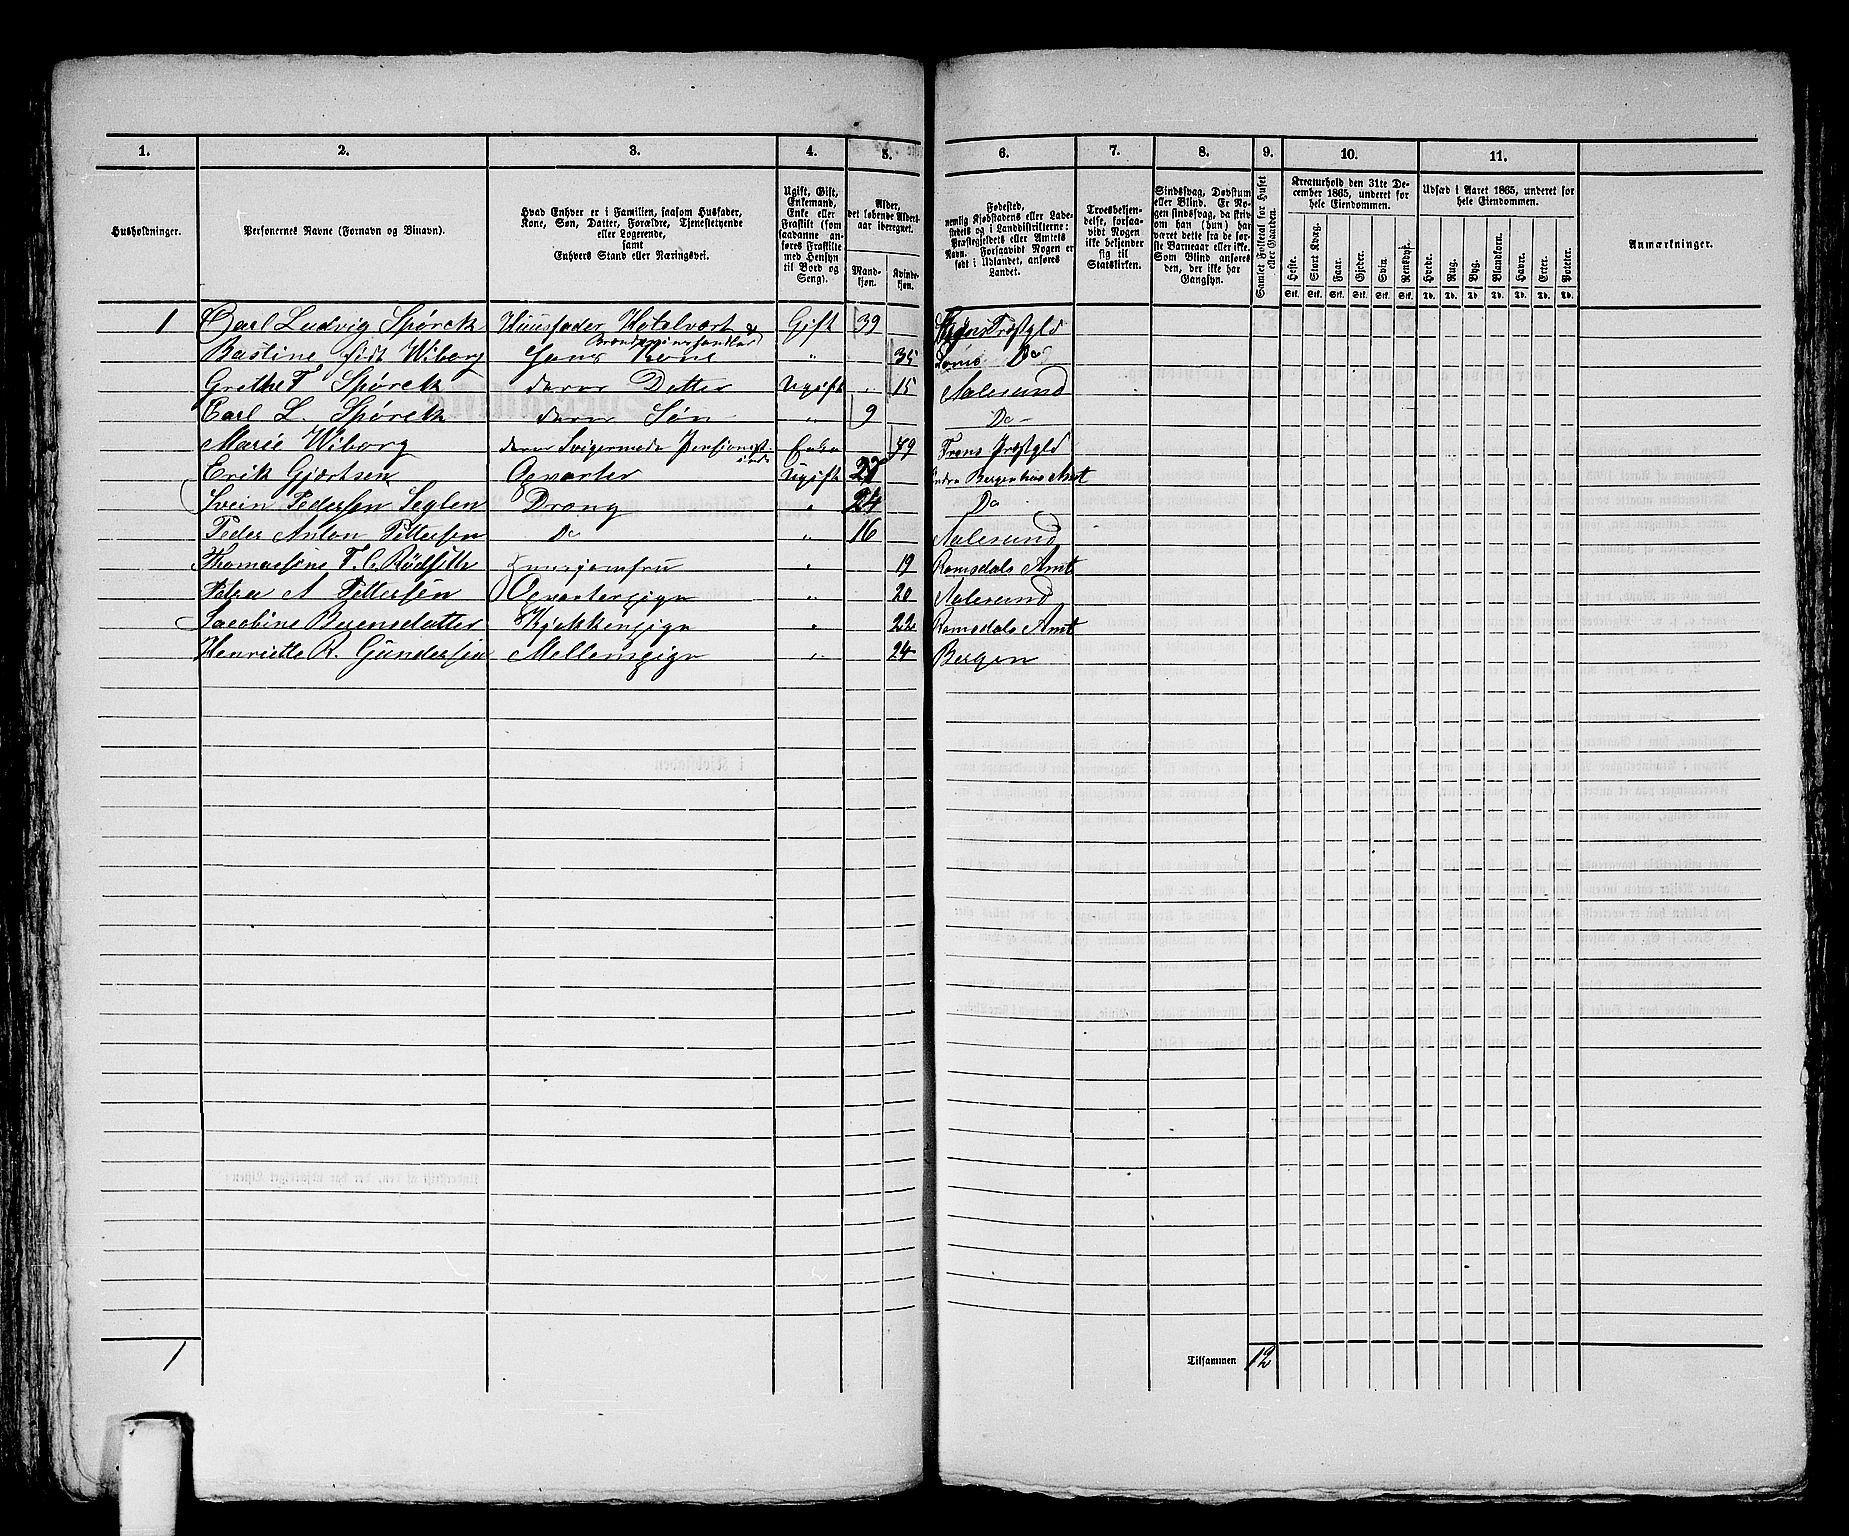 1. 2. 3. 4. 5. 6. 7. 8. 9. 10. 11.
Husholdninger.
Personernes Navne (Fornavn og Binavn).
Hvad Enhver er i Familien, saasom Husfader,
Kone, Søn, Datter, Forældre, Tjenestetyende
eller Logerende,
samt
Enhvers Stand eller Næringsvei.
Ugift, Gift,
Enkemand,
Enke eller
Fraskilt (som
saadanne an-
føres Fraskilte
med Hensyn
til Bord og
Seng).
Alder,
det løbende Alders-
aar iberegnet.
Mand-
kjøn.
Kvinde-
kjøn.
Fødested,
nemlig Kjøbstadens eller Lade-
stedets og i Landdistrikterne:
Præstegjeldets eller Amtets
Navn. Forsaavidt Nogen er
født i Udlandet, anføres
Landet.
Troesbekjen-
delse, forsaa-
vidt Nogen
ikke bekjender
sig til
Statskirken.
Sindssvag, Døvstum
eller Blind. Er No-
gen sindssvag, da skriv
om han (hun) har
været dette fra de før-
ste Barneaar eller ikke.
Som Blind anføres
den, der ikke har
Gangsyn.
Samlet Folketal for Huset
eller Gaarden.
Kreaturhold den 31te De-
cember 1865, underet for
hele Eiendommen.
Heste. Stort Kvæg. Faar. Gjeder. Svin. Rensdyr.
Stk. Stk. Stk. Stk. Stk. Stk.
Udsæd i Aaret 1865, underet for
hele Eiendommen.
Hvede. Rug. Byg. Blandkorn. Havre. Erter. Poteter.
Td. Td. Td. Td. Td. Td. Td.
Anmærkninger.
1 Carl Ludvig Spørck Huusfader Hotelvert & Brændeviinshandler Gift 39 Præstgld
Bastine født Wiborg Hans Kone " 35 Do
Grethe F Spørck deres Datter Ugift " 15 Aalesund
Carl L. Spørck deres Søn " 9 Do
Marie Wiborg deres Svigermoder Enke 79 Præstgld
Erik Gjørtsen Opvarter Ugift 27 Nordre Bergenhus Amt
Svein Pedersen Seglen Dreng " 24 Do
Peder Anton Pettersen Do " 16 Aalesund
Thomassine F. C. Rødsetth Huusjomfru " 19 Romsdals Amt
Petra A Pettersen Opvartersgige " 20 Aalesund
Jacobine Berensdatter Kjøkkengige " 22 Romsdals Amt
Henriette R. Gundersen Mellemgige " 24 Bergen
1 Tilsammen 12